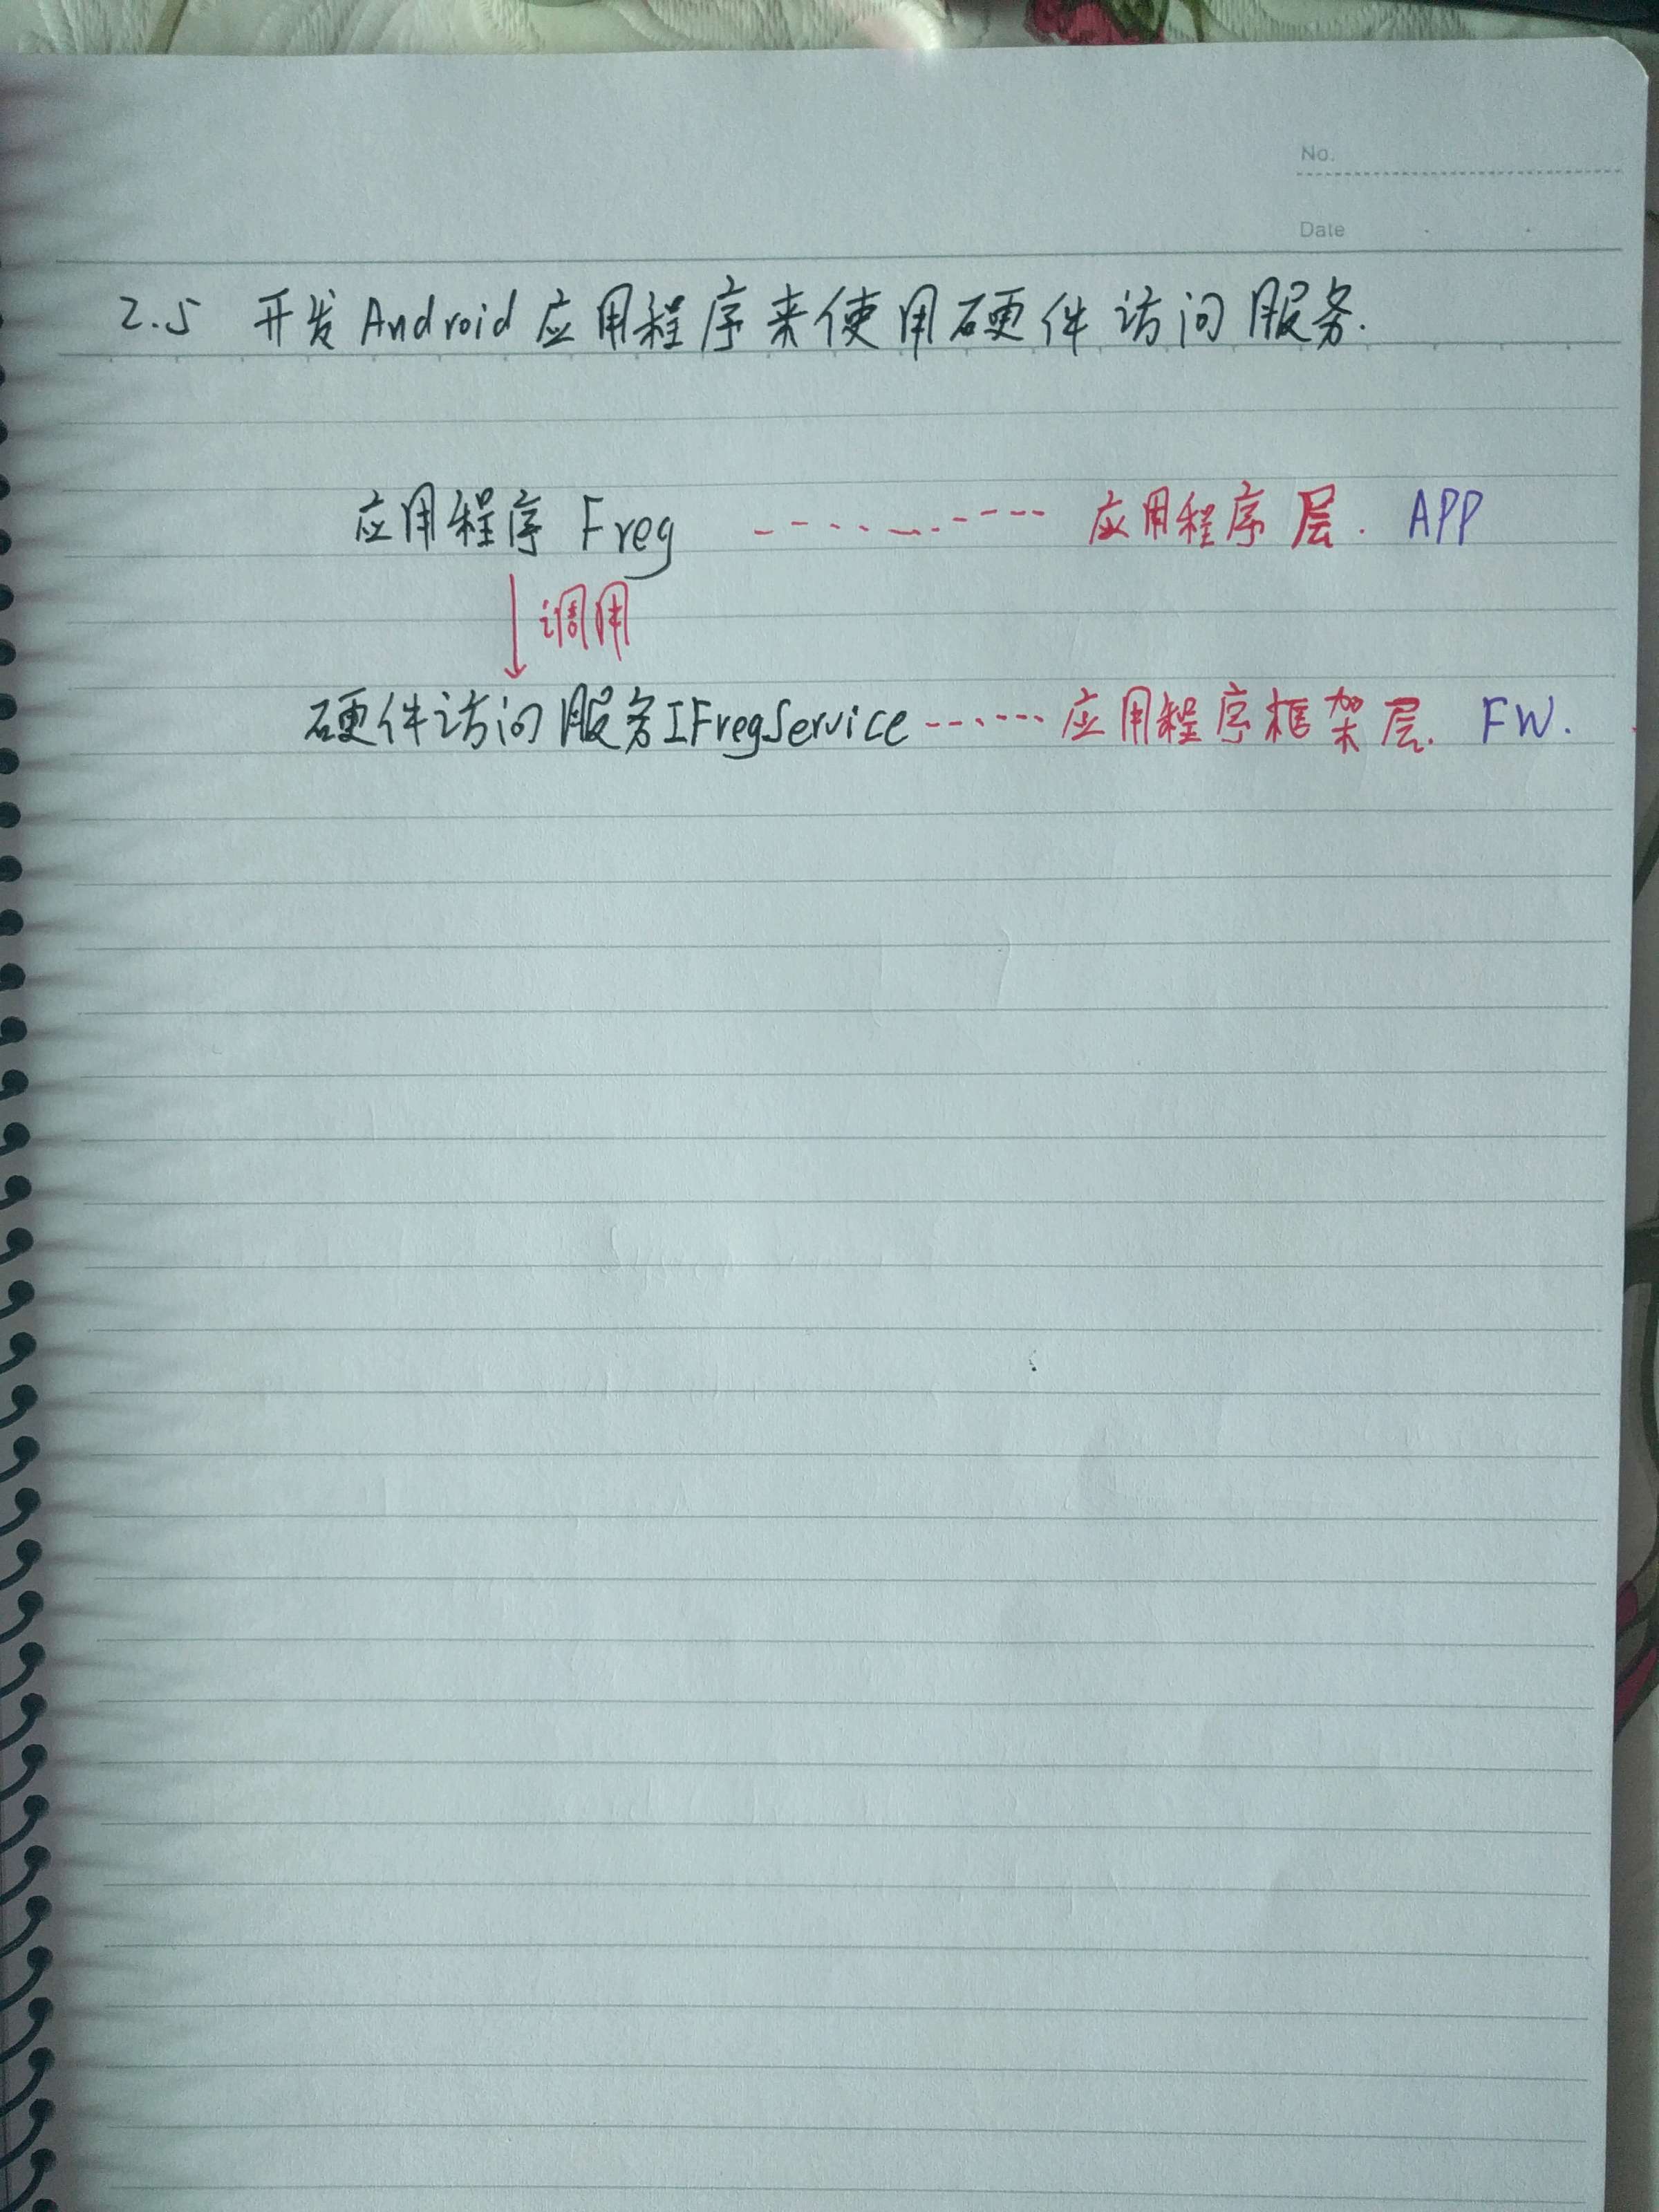 No.
Date
2.5 开发Android应用程序来使用硬件访问服务.
应用程序 Freg ---------- 应用程序层. APP
调用
硬件访问服务IFregService ------ 应用程序框架层. FW.